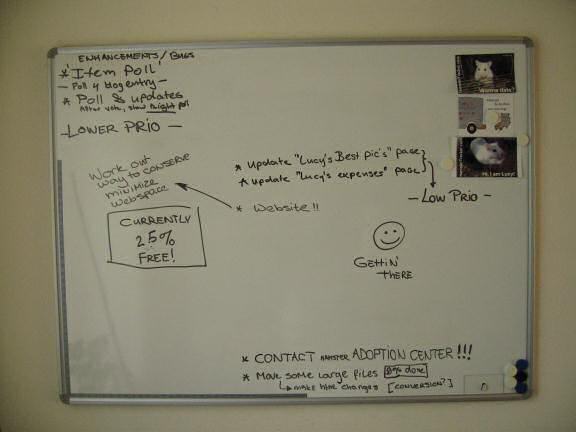 ENHANCEMENTS / BUGS
* 'Item Poll'
— Poll 4 blog entry —
* Poll & updates
After vote, show right poll
— LOWER PRIO —
Work out
way to conserve
minimize
webspace
CURRENTLY
25%
FREE!
* Update "Lucy's Best pic's" page
* update "Lucy's expenses" page
— Low Prio —
* Website !!
GETTIN'
THERE
* CONTACT HAMSTER ADOPTION CENTER !!!
* Make some large files 0% done
make htm changes [CONVERSION?]
Wanna date?
Hi, I am Lucy!